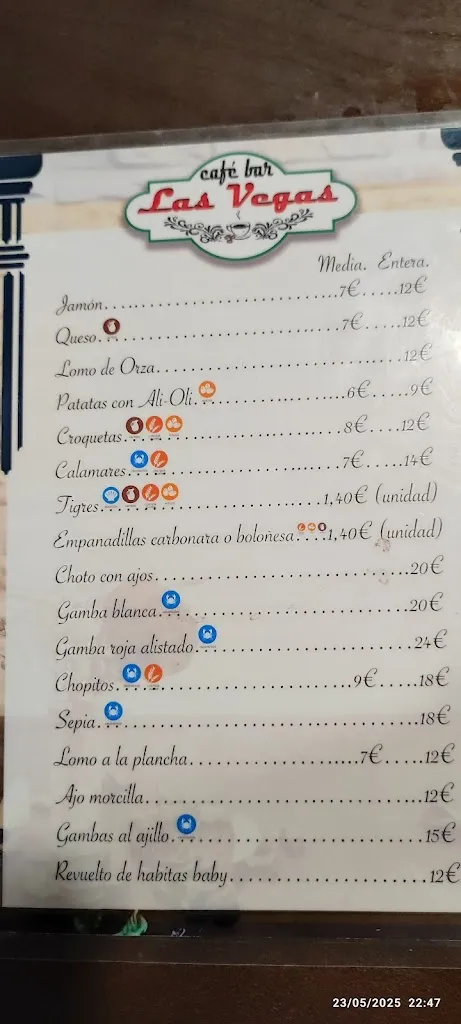 café bar
Las Vegas
Media. Entera.
Jamón.......................7€.....12€
Queso.......................7€.....12€
Lomo de Orza.......................12€
Patatas con Ali-Oli.......................6€.....9€
Croquetas.......................8€.....12€
Calamares.......................7€.....14€
Tigres.......................1,40€ (unidad)
Empanadillas carbonara o boloñesa....1,40€ (unidad)
Choto con ajos.......................20€
Gamba blanca.......................20€
Gamba roja alistado.......................24€
Chopitos.......................9€.....18€
Sepia.......................18€
Lomo a la plancha.......................7€.....12€
Ajo morcilla.......................12€
Gambas al ajillo.......................15€
Revuelto de habitas baby.......................12€
23/05/2025 22:47